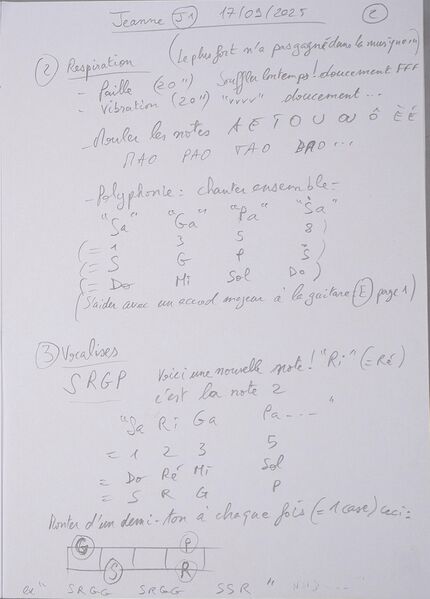 Jeanne J1 17/09/2025 2
(Le plus fort n'a pas gagné dans la musique!!!)
2 Respiration
- Paille (20") Souffler lontemps! doucement FFF
- vibration (20") "vvvv" doucement...
- Rouler les notes A E I O U OU Ô È É
MAO PAO TAO BAO...
- Polyphonie = chanter ensemble =
"Sa" "Ga" "Pa" "Ṡa"
(= 1 3 5 8)
(= S G P Ṡ)
(= Do Mi Sol Do)
(S'aider avec un accord majeur à la guitare (E) page 1)
3 Vocalises
S R G P Voici une nouvelle note! "Ri" (= Ré)
c'est la note 2
"Sa Ri Ga Pa..."
= 1 2 3 5
= Do Ré Mi Sol
= S R G P
Monter d'un demi-ton à chaque fois (= 1 case) ceci:
G P
S R
ex " S R G G S R G G S S R "